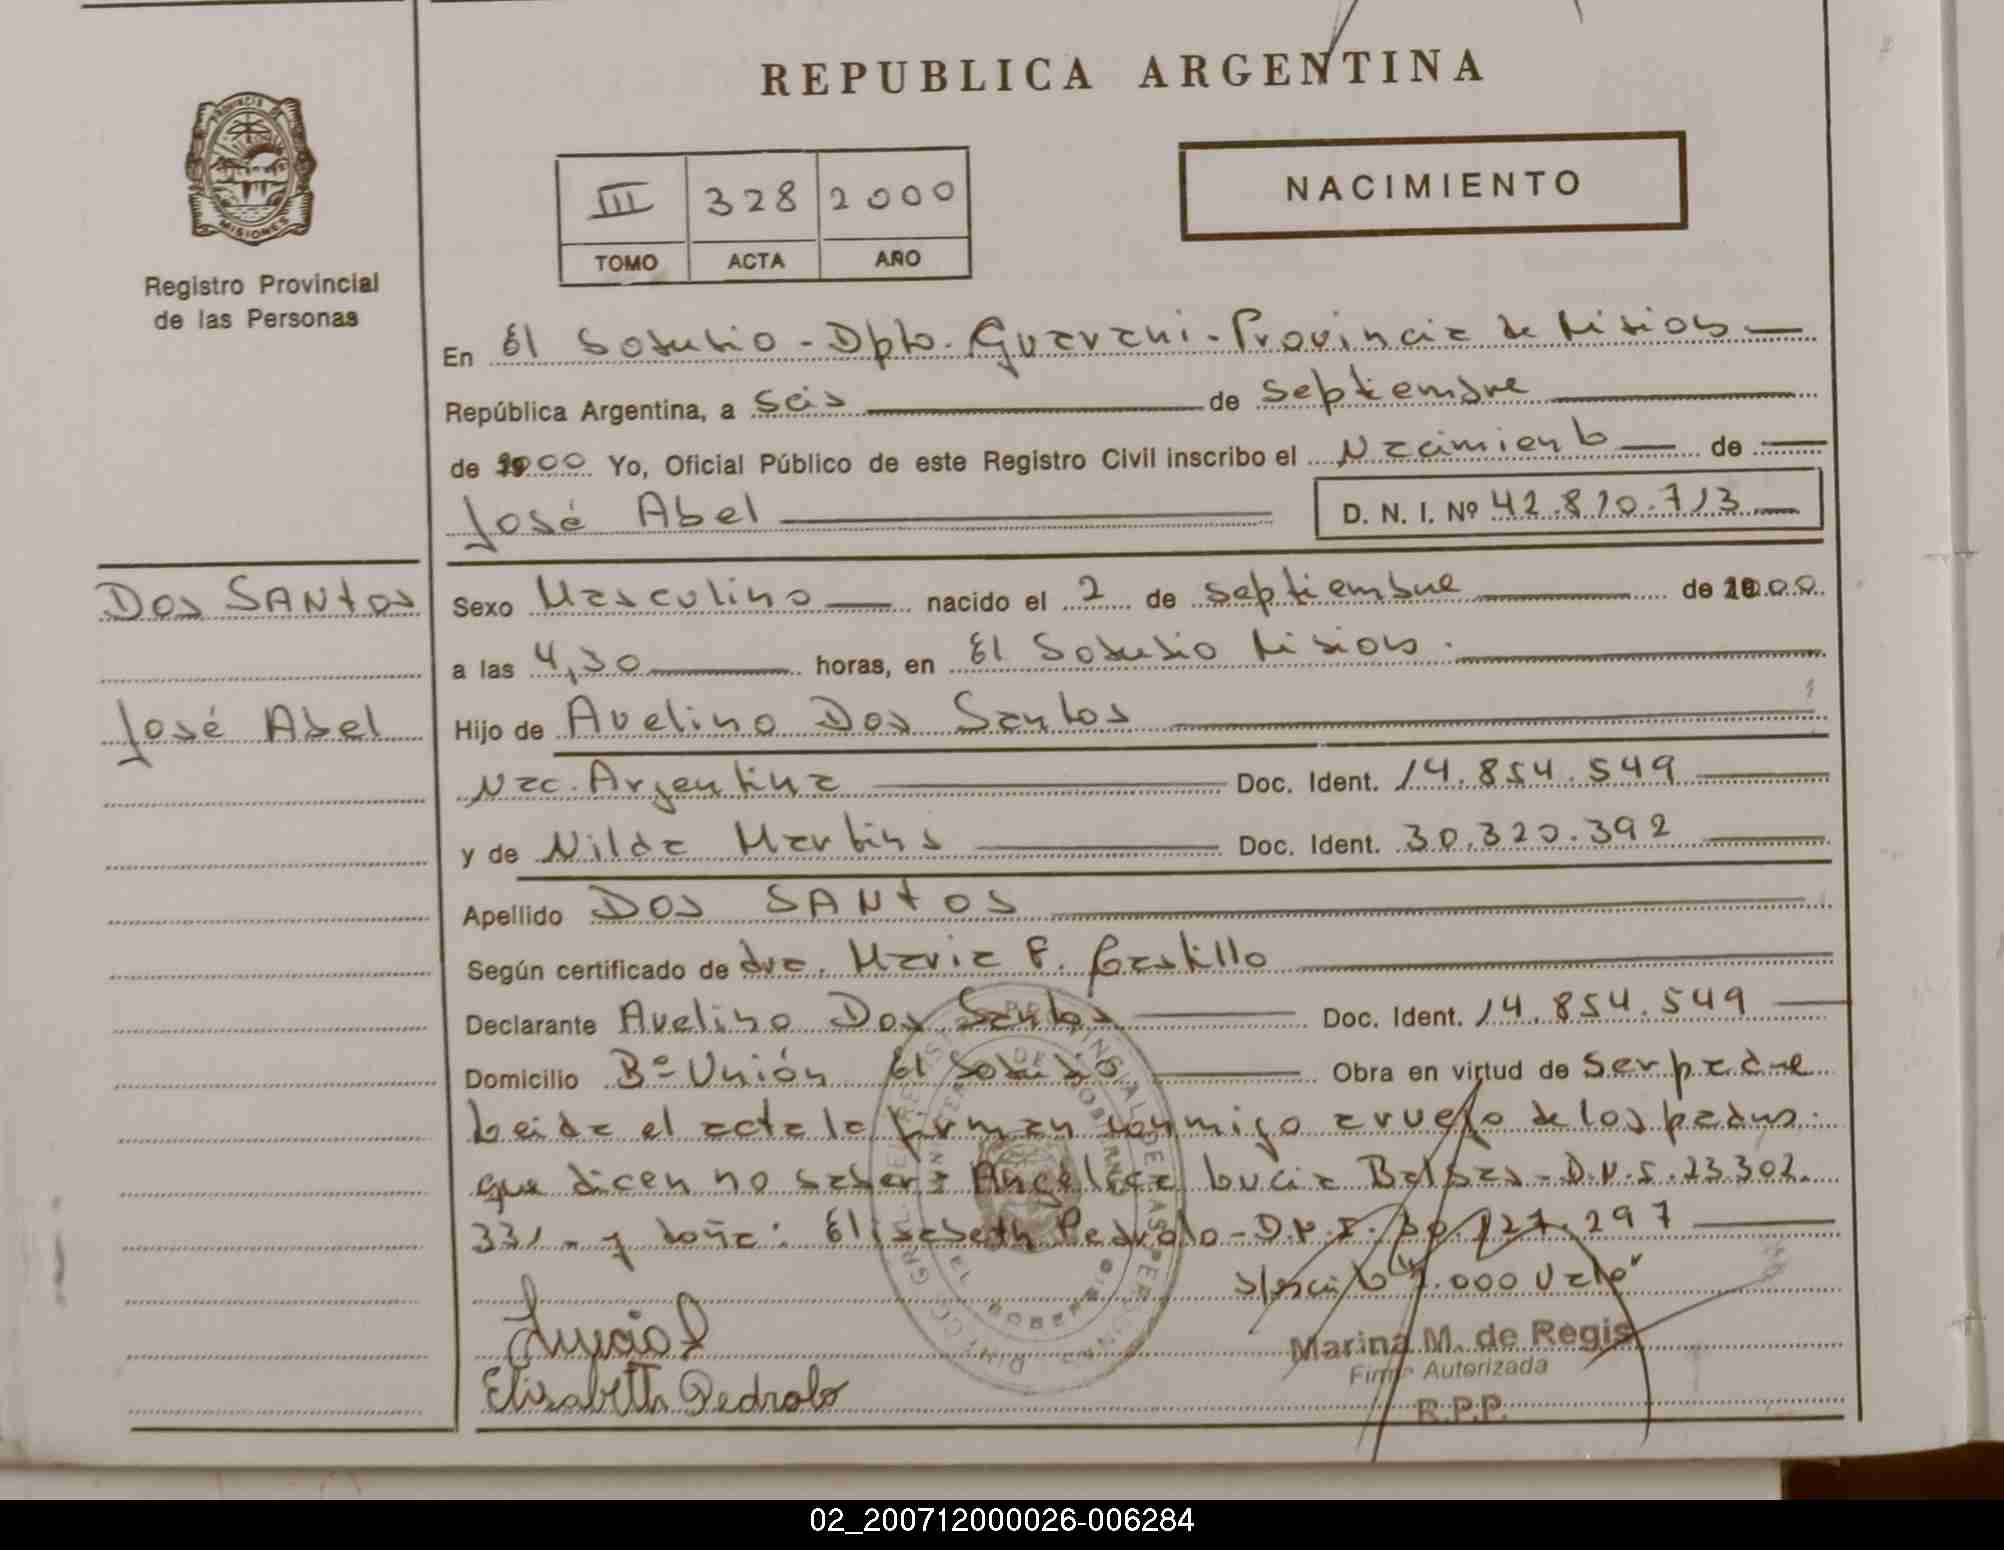 REPUBLICA ARGENTINA
PROVINCIA DE
MISIONES
Registro Provincial
de las Personas
III 328 2000
TOMO ACTA AÑO
NACIMIENTO
En El Soberbio - Dpto. Guarani - Provincia de Misiones
República Argentina, a seis de septiembre
de 2000 Yo, Oficial Público de este Registro Civil inscribo el Nacimiento de
José Abel
D. N. I. Nº 42.810.713
Dos SANtos
José Abel
Sexo Masculino nacido el 2 de septiembre de 2000
a las 4,30 horas, en El Soberbio Misiones.
Hijo de Avelino Dos Santos
Nac. Argentina Doc. Ident. 14.854.549
y de Nilda Martins Doc. Ident. 30.320.392
Apellido DOS SANtOS
Según certificado de dra. Maria F. Castillo
Declarante Avelino Dos Santos Doc. Ident. 14.854.549
Domicilio Bº Unión El Soberbio Obra en virtud de ser padre
Leida el acta la firman conmigo a ruego de los padres
que dicen no saber: Angélica Lucia Balsas - D.N.I. 23.302.
331 - y doña: Elisabeth Pedrolo - D.N.I. 30.127.297
Lucia
Elisabeth Pedrolo
Marina M. de Regis
Firma Autorizada
R.P.P.
02_200712000026-006284